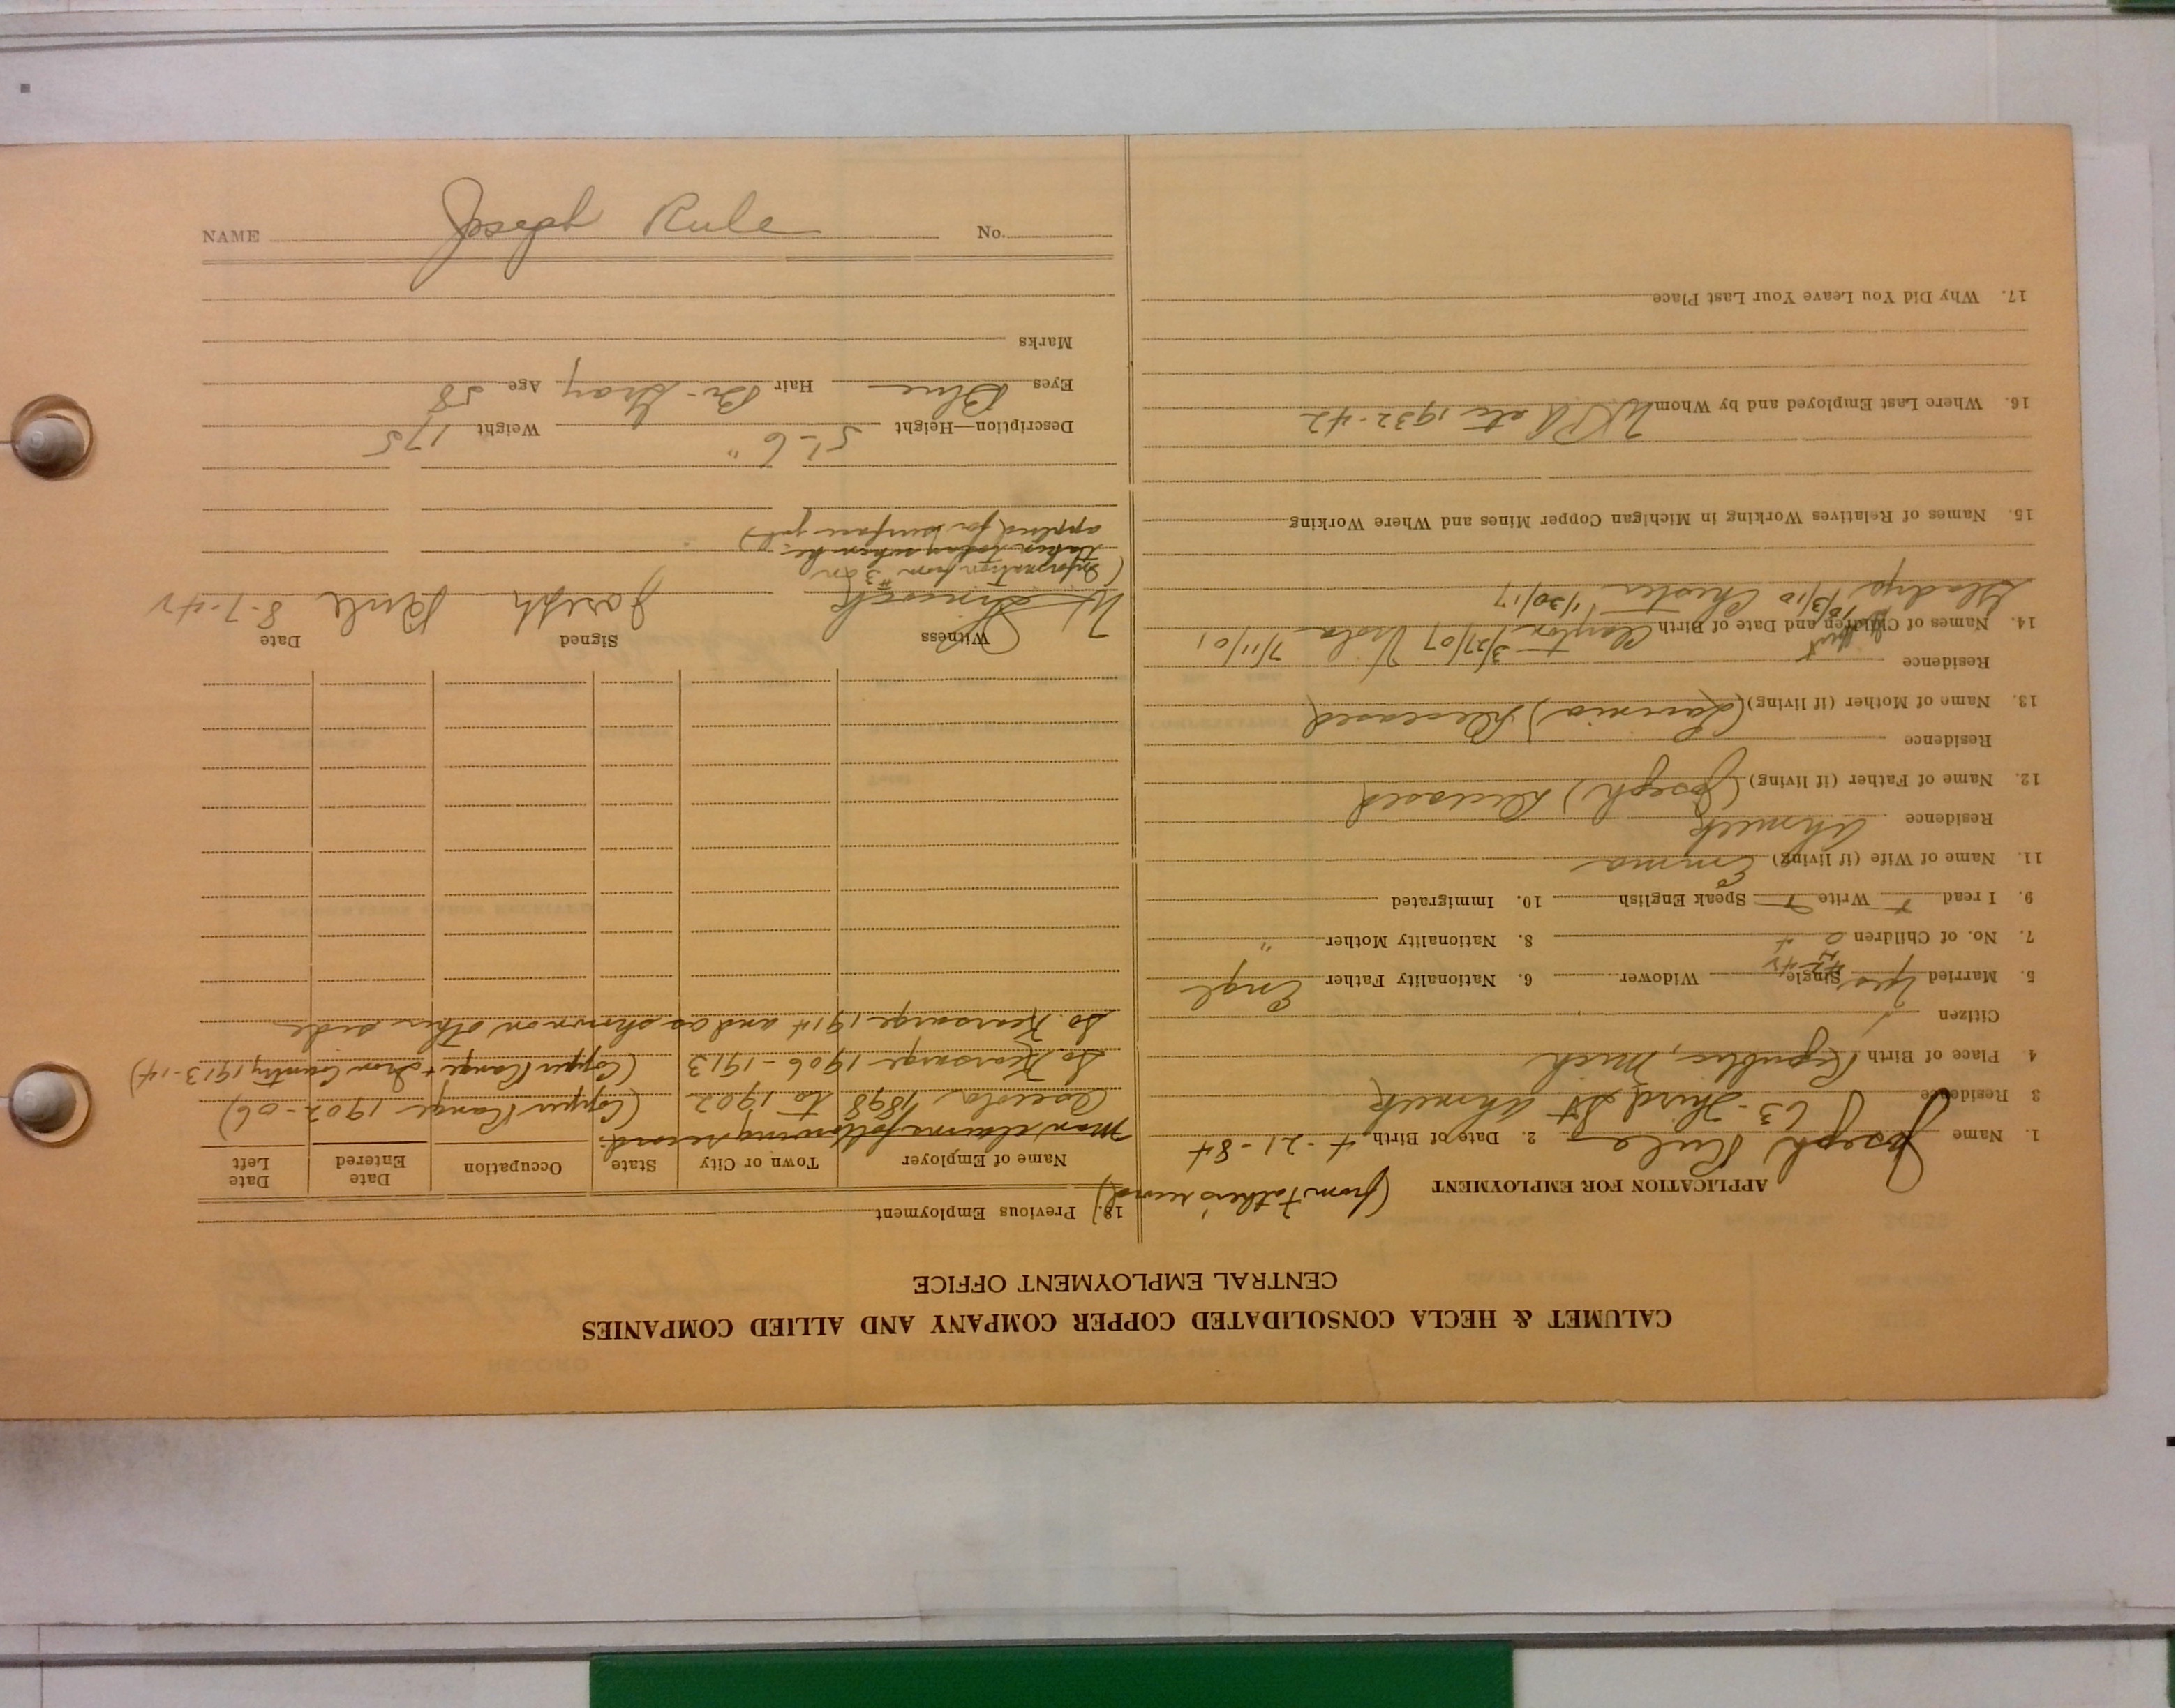 CALUMET & HECLA CONSOLIDATED COPPER COMPANY AND ALLIED COMPANIES
CENTRAL EMPLOYMENT OFFICE
APPLICATION FOR EMPLOYMENT (from Father's record)
1. Name Joseph Rule 2. Date of Birth 4-21-84
3 Residence 63-Third St Ahmeek
4. Place of Birth Republic, Mich
Citizen
5. Married Yes Single Widower 6. Nationality Father Engl
7. No. of Children 8. Nationality Mother "
9. I read Write Speak English 10. Immigrated
11. Name of Wife (if living) Emma
Residence Ahmeek
12. Name of Father (if living) (Joseph) Deceased
Residence
13. Name of Mother (if living) (Lavinia) Deceased
Residence
14. Names of Children and Date of Birth Clayton 3/27/07 Viola 7/11/01
Gladys 10/3/10 Chester 1/30/17
15. Names of Relatives Working in Michigan Copper Mines and Where Working
16. Where Last Employed and by Whom WPA etc 1932-42
17. Why Did You Leave Your Last Place
18. Previous Employment
Name of Employer Town or City State Occupation Date Entered Date Left
Man claims following record:
Osceola 1898 to 1902 (Copper Range 1902-06)
So. Kearsarge 1906-1913 (Copper Range + Iron County 1913-14)
So. Kearsarge 1914 and as shown on other side
Witness Signed Date
Joseph Rule 8-7-42
(Information from #3 on
taken today when he
applied for surface job)
Description—Height 5'-6" Weight 175
Eyes Blue Hair Br-Gray Age 58
Marks
NAME Joseph Rule No.